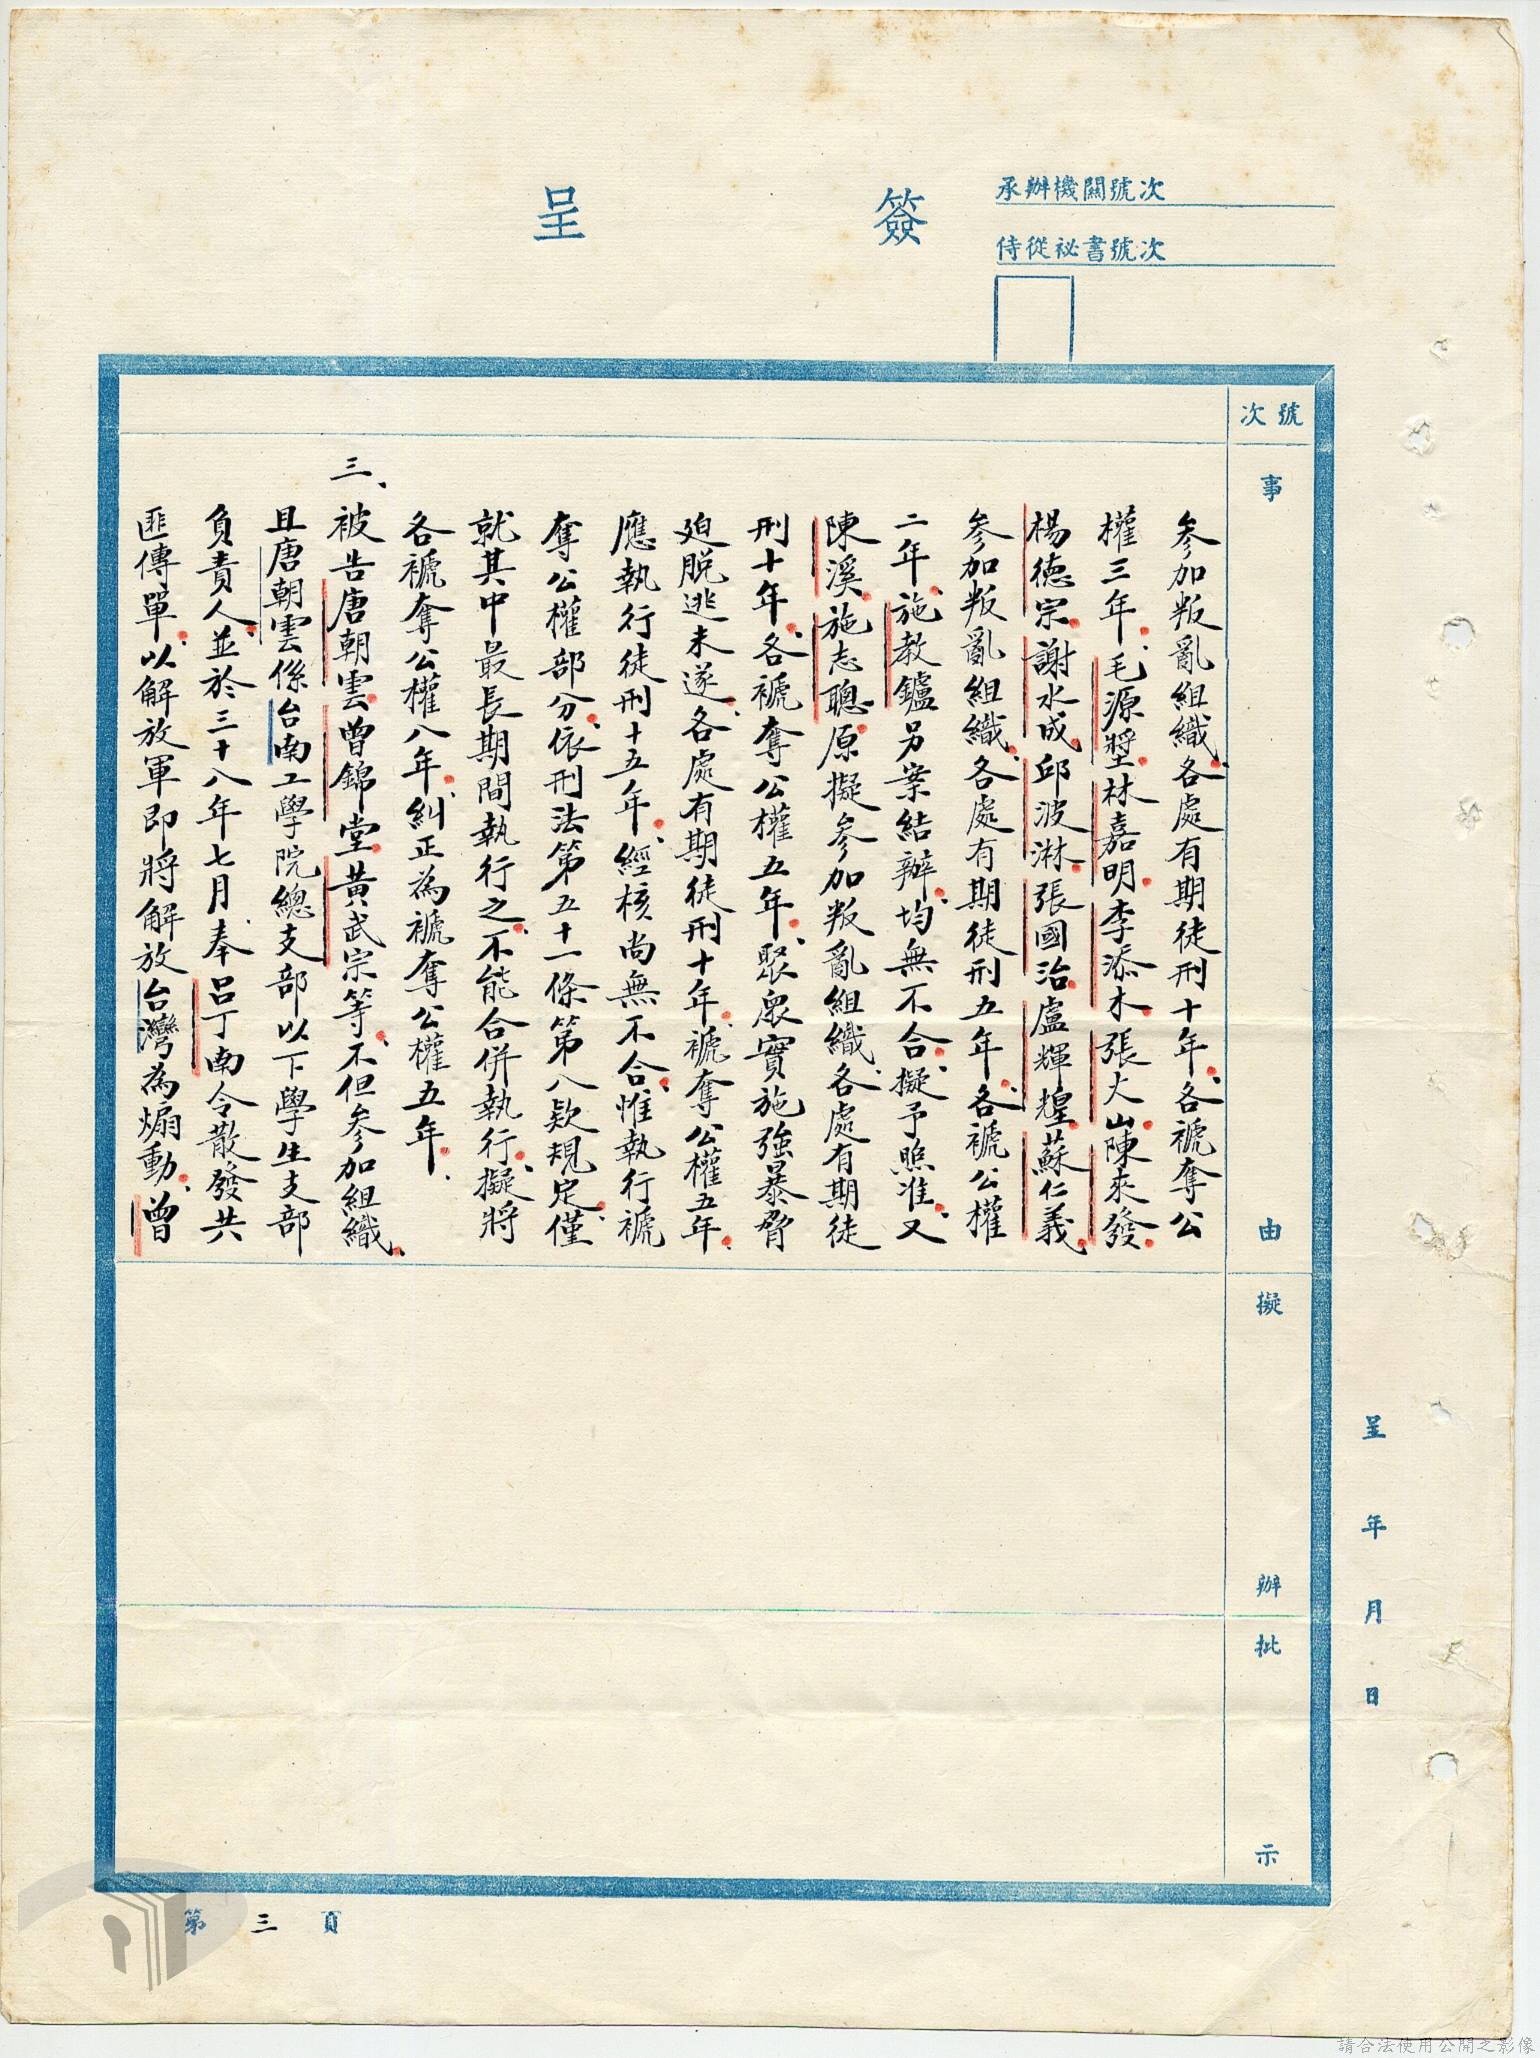 簽呈
承辦機關號次
侍從祕書號次
號次
事由
擬辦
批示
呈 年 月 日
參加叛亂組織、各處有期徒刑十年、各褫奪公
權三年、毛源塋林嘉明李添木張火山陳來發
楊德宗謝水成邱波淋張國治盧輝煌蘇仁義
參加叛亂組織、各處有期徒刑五年、各褫公權
二年、施教鑪另案結辦、均無不合、擬予照准、又
陳溪施志聰原擬參加叛亂組織、各處有期徒
刑十年、各褫奪公權五年、聚眾實施強暴脅
迫脱逃未遂、各處有期徒刑十年、褫奪公權五年、
應執行徒刑十五年、經核尚無不合、惟執行褫
奪公權部分、依刑法第五十一條第八款規定、僅
就其中最長期間執行之、不能合併執行、擬將
各褫奪公權八年、糾正為褫奪公權五年、
三、被告唐朝雲曾錦堂黃武宗等、不但參加組織、
且唐朝雲係台南工學院總支部以下學生支部
負責人、並於三十八年七月、奉呂丁南令散發共
匪傳單、以解放軍即將解放台灣為煽動、曾
第三頁
請合法使用公開之影像